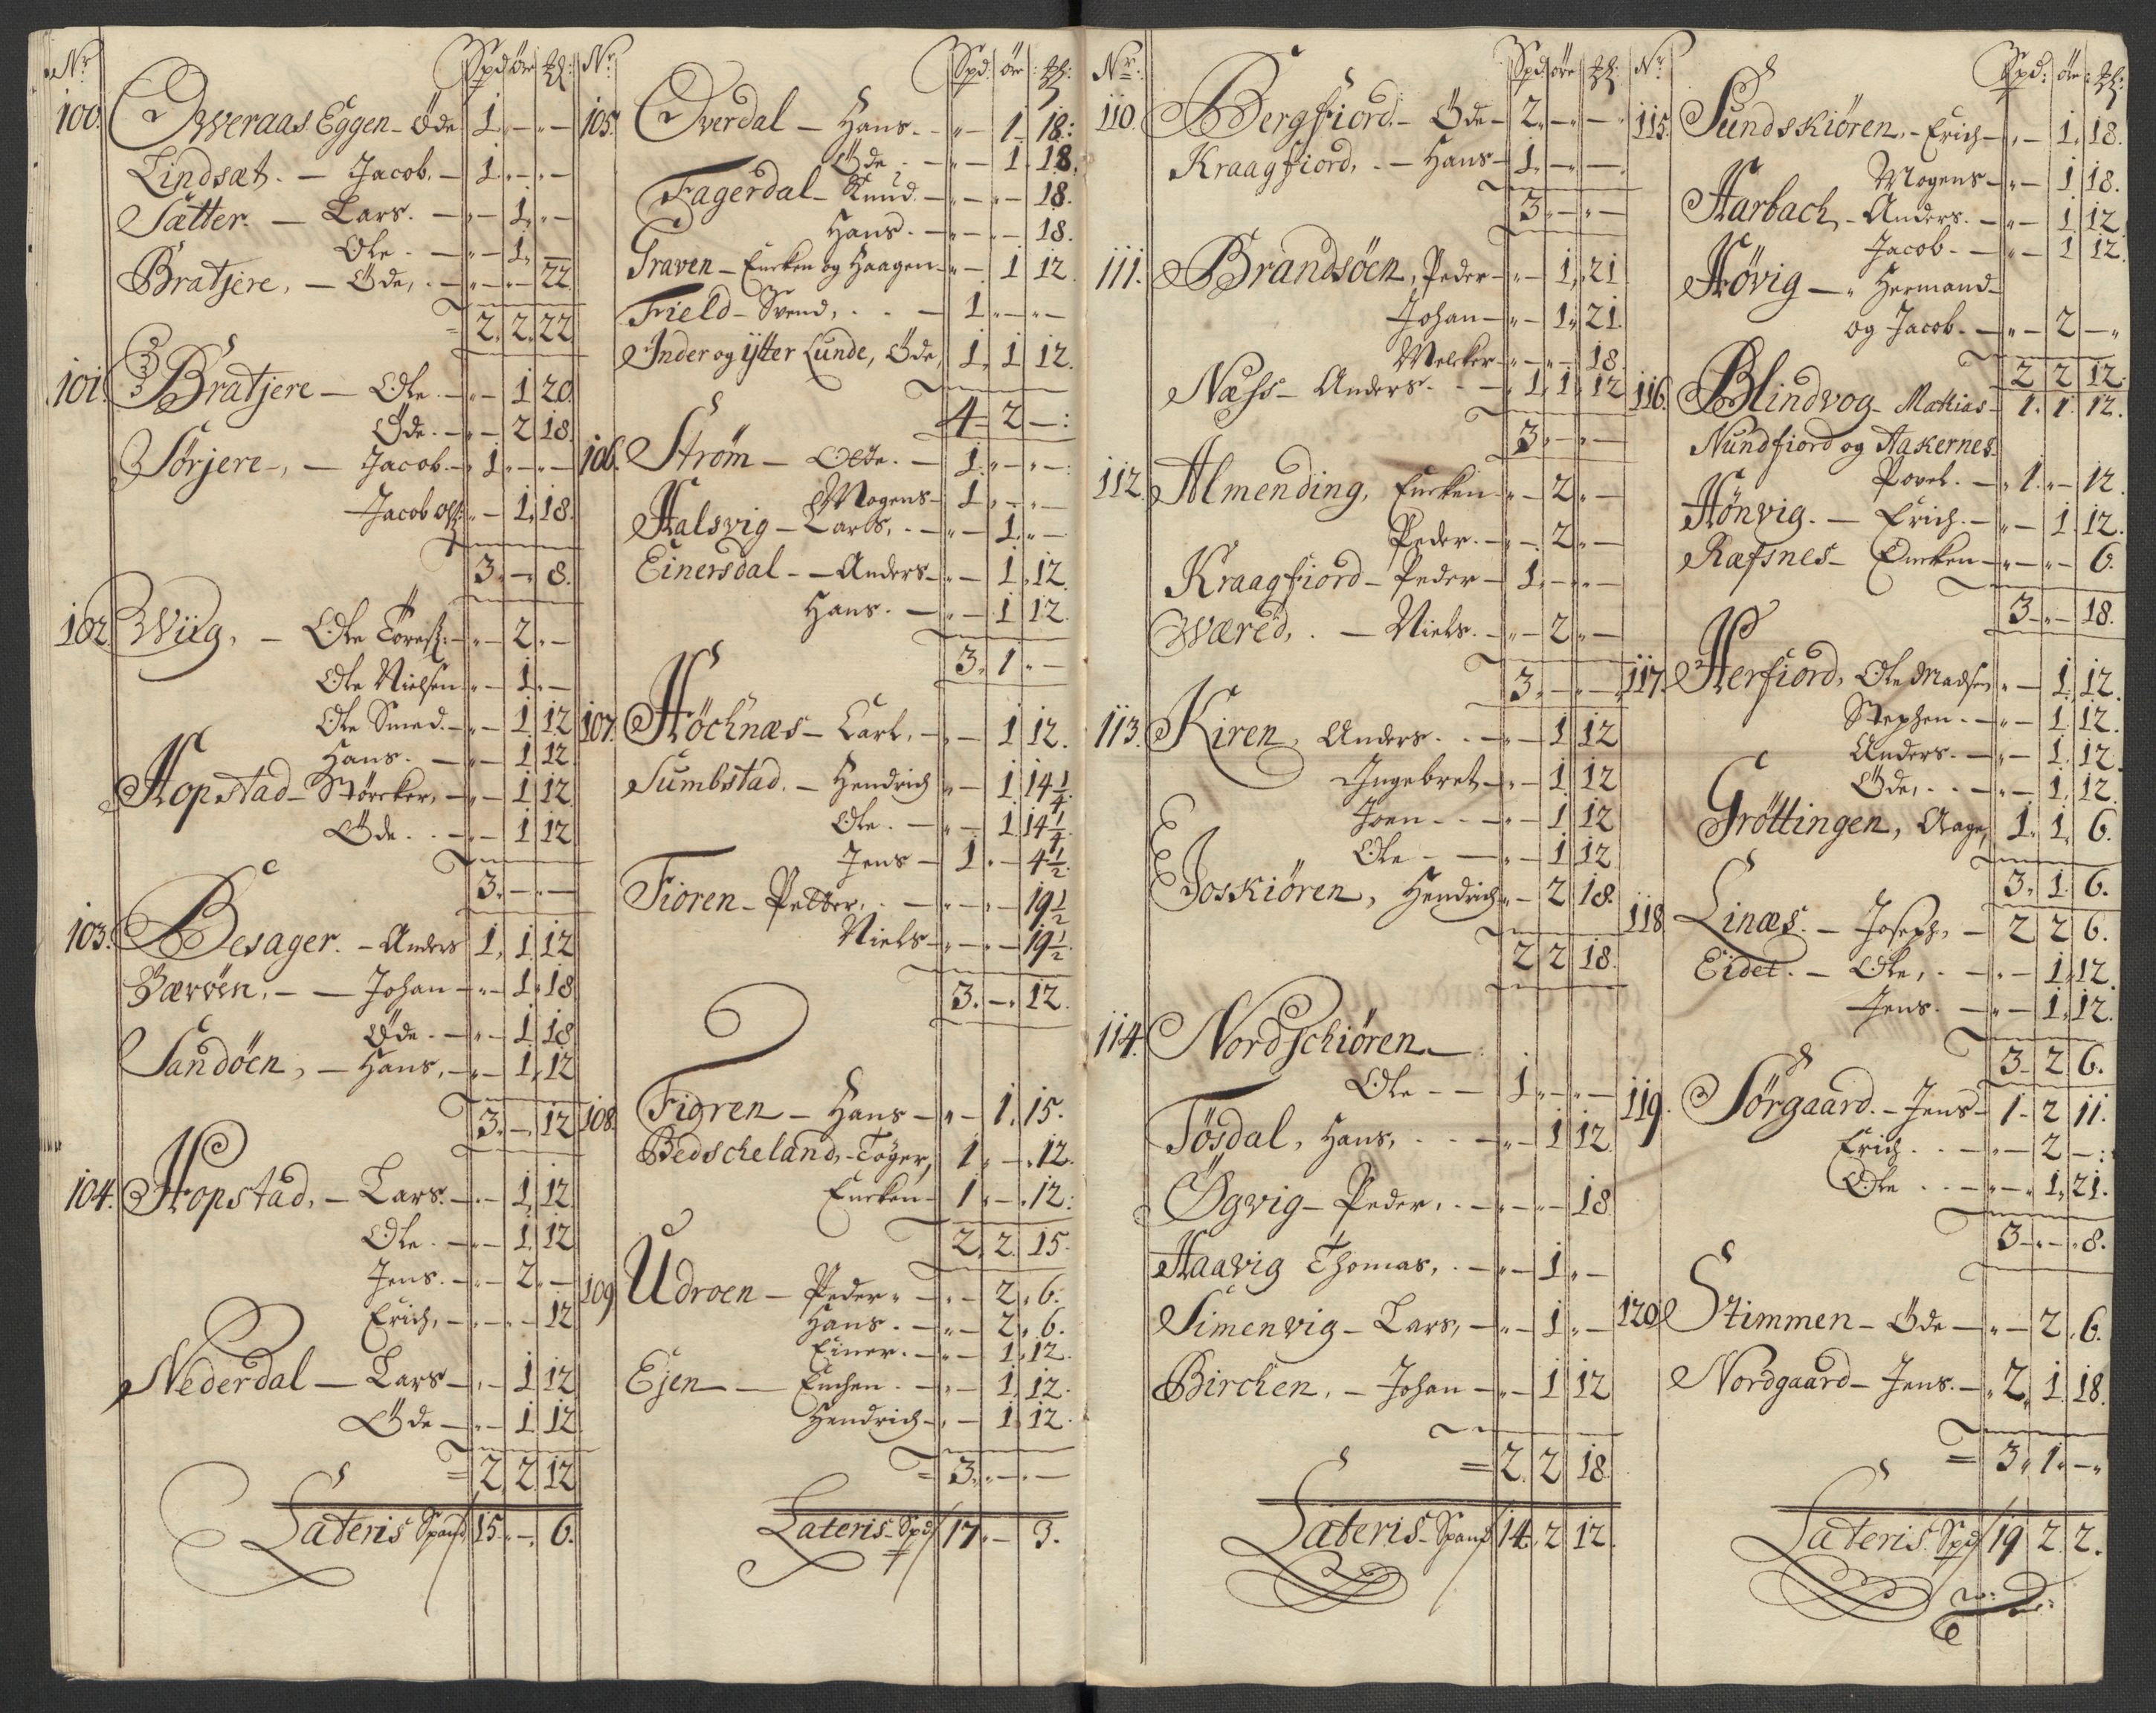 Nr Spd öre ℔:
100. Overaas Eggen - Öde 1 " - " -
Lindsæt. - Jacob. - 1 " - " -
Sætter. - Lars. - " - 1 " -
Ole. - " - 1 " -
Bratjere, - Öde, . - " - " - 22
= 2. 2. 22
101. Bratjere - Ole. - " - 1 20.
Öde. - " - 2 18.
Sørjere, - Jacob. - 1 " - " -
Jacob Ols: " - 1 18.
3. - 8.
102. Wiig, - Ole Toresz: - " - 2 " -
Ole Nielsen " - 1 " -
Ole Smed. - " - 1 12
Hans. - " - 1 12
Hopstad - Störcker, - " - 1 12
Öde. . - " - 1 12
3. - " -
103. Besager. - Anders 1. 1 12
Værøen, - - Johan - " - 1 18
Öde. - " - 1 18
Sandöen, - Hans, - " - 1 12
3. - 12
104. Hopstad, - Lars. - " - 1 12
Ole. - " - 1 12
Jens. - " - 2 " -
Erich, - " - " - 12
Nederdal - Lars - " - 1 12
Öde - " - 1 12
= 2. 2. 12
Lateris Spand 15. - 6.
Nr. Spd: öre: ℔:
105. Overdal - Hans. - " - 1 18:
Öde. - " - 1 18.
Fagerdal - Knud. - " - " - 18.
Hans. - " - " - 18.
Graven - Encken og Haagen - " - 1 12
Field - Svend, . . - 1 " - " -
Inder og ÿtter Lunde, Öde, 1. 1 12.
4 = 2 - :
106. Strøm - Olde. - 1 " - " -
Mogens - 1 " - " -
Halsvig - Lars, . - " - 1 " -
Einersdal - - Anders - " - 1. 12
Hans. - " - 1 12.
3. 1 " -
107. Höchnæs - Carl, - " - 1 12.
Sumbstad. - Hendrich " - 1 14 1/4.
Ole. - " - 1 14 1/4.
Jens - 1 " - 4 1/2.
Fioren - Petter, . - " - " - 19 1/2
Niels - " - " - 19 1/2.
3. - 12.
108. Fioren - Hans - " - 1. 15.
Bedscheland, - Töger, 1 " - " 12.
Encken - 1 " - " 12:
2. 2. 15.
109 Udroen - Peder " - " - 2. 6.
Hans. - " - 2. 6.
Einer. - " - 1. 12.
Ejen - - Enchen. - " - 1. 12.
Hendrich - " - 1 12.
= 3. " - " -
Lateris Spd 17. - 3.
Nr. Spd öre ℔:
110. Bergfiord, - Öde - 2 " - " -
Kraagfiord, . - Hans - 1 " - " -
3. - " -
111. Brandsöen, Peder - " - 1. 21
Johan - " - 1. 21.
Melcker - " - " - 18.
Næss - Anders. - - 1. 1. 12
3. - " -
112. Almending, Encken " - 2 " -
Peder. - " - 2 " -
Kraagfiord - Peder - 1 " - " -
Wæred, . - Niels. - " - 2 " -
3. - " -
113. Kiren, Anders. . - " - 1 12
Ingebret - " - 1 12
Joen - . - " - 1 12
Ole - - " - 1 12
Joskiören, Hendrich " - 2 18.
2 2 18.
114. Nordschiören -
Ole - - 1 " - " -
Tösdal, Hans, . - - " - 1 12
Øgvig - Peder, . - " - " - 18
Haavig Thomas, . - " - 1 " -
Simenvig - Lars, - " - 1 " -
Birchen, - Johan - " - 1 12
= 2. 2 18.
Lateris Spand 14. 2 12.
Nr Spd: öre: ℔:
115. Sundskiören, - Erich - " - 1. 18.
Mogens - " - 1 18.
Harbach, - Anders. - " - 1 12
Jacob. - " - 1 12
Hövig - " Hermand -
og Jacob. - " - 2 - "
2 2 12.
116. Blindvog - Mathias - 1. 1. 12.
Nundfiord og Aakernes
Povel. - " 1. " - 12.
Hönvig. - Erich. - " - 1. 12.
Ræfsnes - Encken - " - " - 6.
3 - " - 18.
117. Herfiord, Ole Madsen " - 1. 12.
Stephen. - " - 1. 12.
Anders. - " - 1. 12.
Öde, . . - " - 1. 12.
Gröttingen, Aage, 1. 1. 6.
3. 1. 6.
118. Linæs. - Joseph, - 2 2 6.
Eidet. - Ole, . - " - 1. 12.
Jens. - " - 1. 12.
3 - 2 6.
119. Sörgaard. - Jens - 1 - 2 11.
Erich. . - " - 2 - :
Ole . . - " - " 1. 21.
3 - " - 8.
120. Stimmen - Öde - " - 2. 6.
Nordgaard - Jens. - " 2. 1. 18.
= 3. 1. - "
Lateris. Spd 19 2. 2.